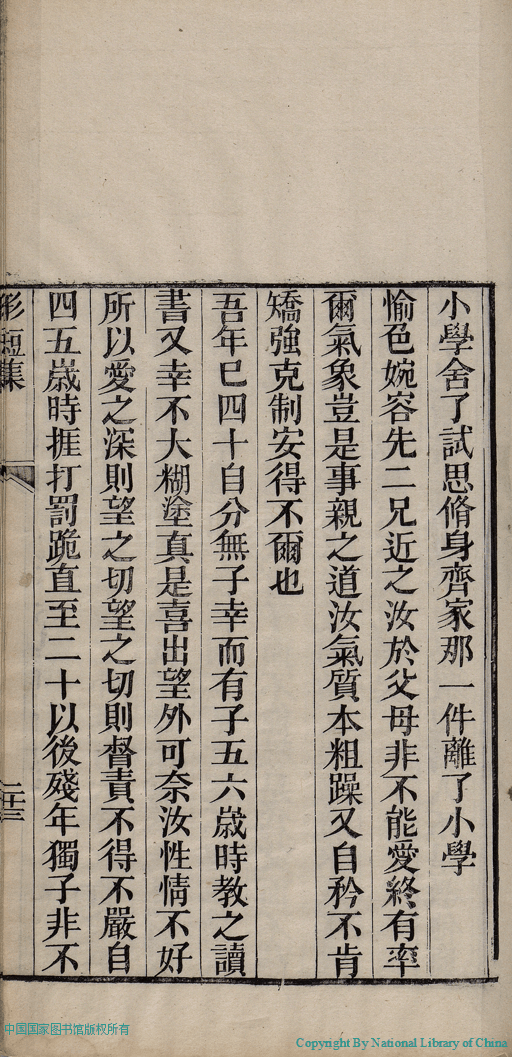 小學舍了試思脩身齊家那一件離了小學
愉色婉容先二兄近之汝於父母非不能愛終有率
爾氣象豈是事親之道汝氣質本粗躁又自矜不肯
矯強克制安得不爾也
吾年已四十自分無子幸而有子五六歲時教之讀
書又幸不大糊塗真是喜出望外可奈汝性情不好
所以愛之深則望之切望之切則督責不得不嚴自
四五歲時捱打罰跪直至二十以後殘年獨子非不
短集
中国国家图书馆版权所有
Copyright By National Library of China